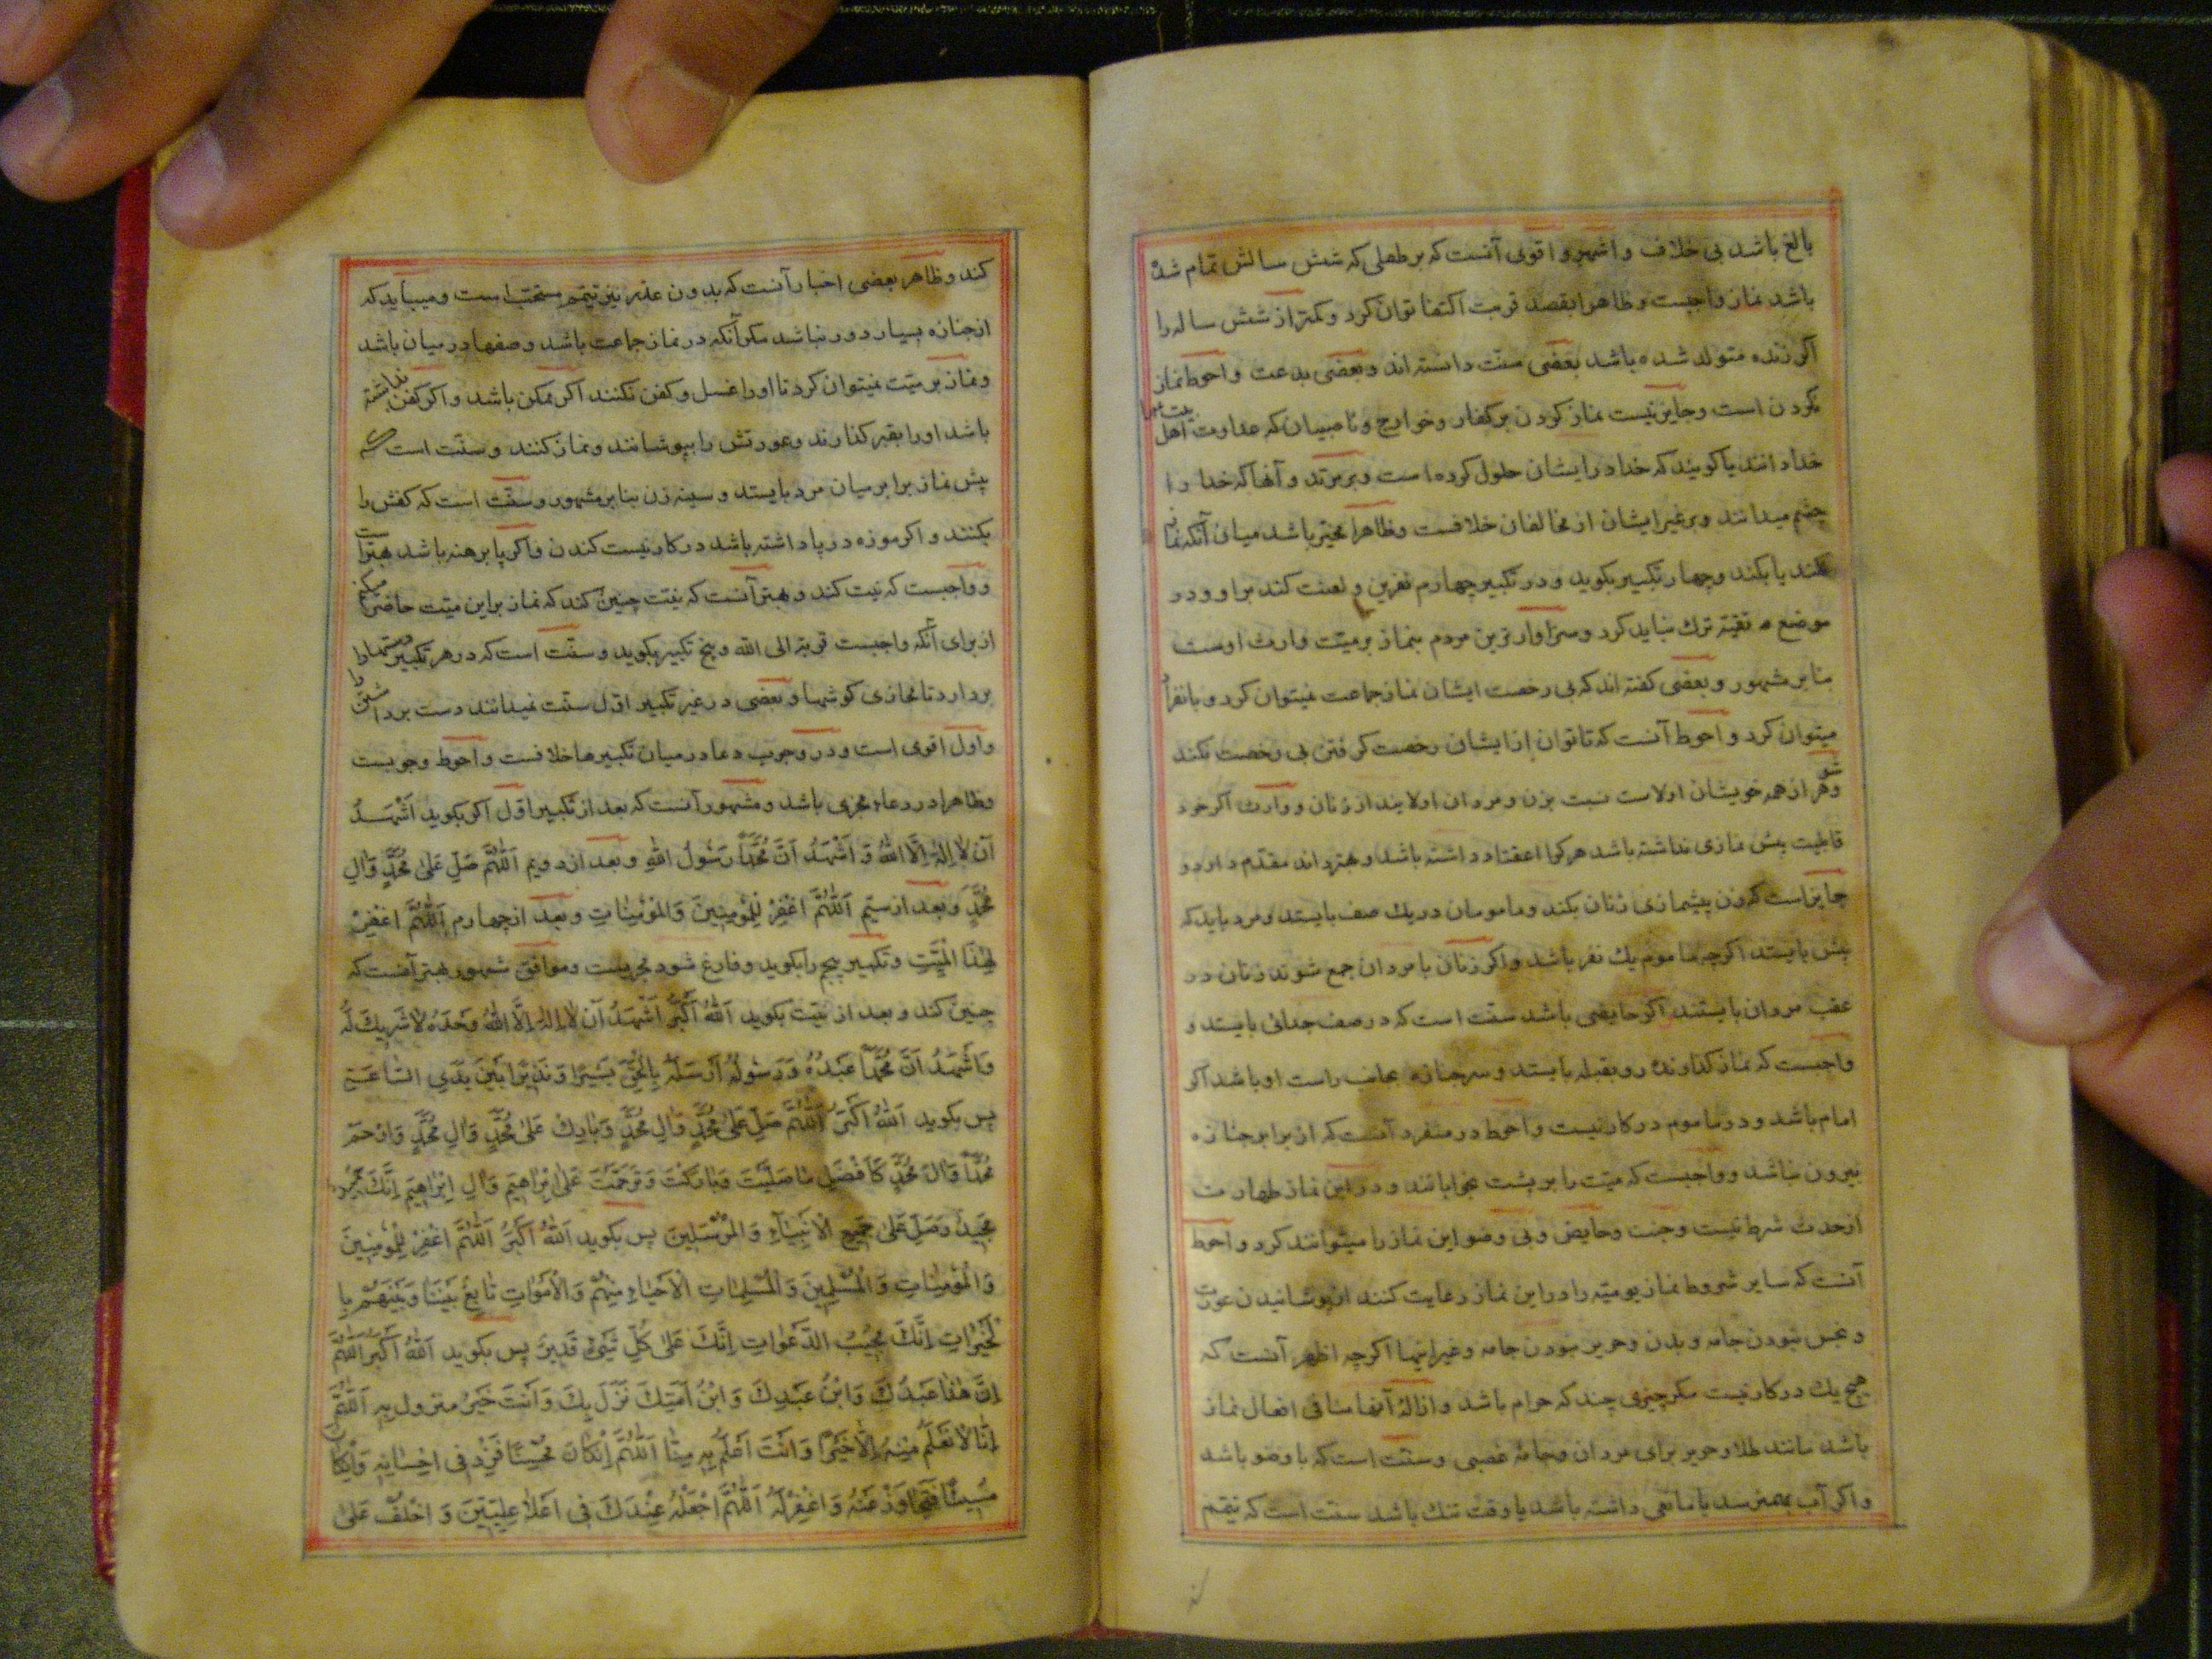 بالغ باشد بی خلاف و اشهر و اقوی آنست که بر طفلی که شش سالش تمام شده
باشد نماز واجبست و ظاهرا بقصد قربت اکتفا توان کرد و کمتر از شش ساله را
اکر زنده متولد شده باشد بعضی سنّت دانسته اند و بعضی بدعت و احوط نماز
نکردن است و جایز نیست نماز کردن بر کفار و خوارج و ناصبیان که عداوت اهل بیت
خدا دانند یا کویند که خدا در ایشان حلول کرده است و بر مرتد و آنها که خدا را
جسم میدانند و بر غیر ایشان از مخالفان خلافست و ظاهرا مخیّر باشد میان آنکه نماز
نکند یا بکند و چهار تکبیر بکوید و در تکبیر چهارم نفرین و لعنت کند بر او و در
موضع تقیّه ترك نباید کرد و سزاوارترین مردم بنماز بر میّت وارث اوست
بنا بر مشهور و بعضی کفته اند که بی رخصت ایشان نماز جماعت نمیتوان کرد و بانفراد
میتوان کرد و احوط آنست که تا توان از ایشان رخصت کرفتن بی رخصت نکند
و شوهر از همه خویشان اولاست نسبت بزن و مردان اولایند از زنان و وارث اکر خود
قابلیت پیش نمازی نداشته باشد هر کرا اعتقاد داشته باشد و بهتر داند مقدّم دارد و
جایز است که زن پیشنمازی زنان بکند و مامومان در یك صف بایستد و مرد باید که
پیش بایستد اکرچه ماموم یك نفر باشد و اکر زنان با مردان جمع شوند زنان در
عقب مردان بایستند اکر حایضی باشد سنّت است که در صف جدائی بایستد و
واجبست که نماز کذارنده رو بقبله بایستد و سر جنازه بجانب راست او باشد اکر
امام باشد و در ماموم در کار نیست و احوط در منفرد آنست که از برابر جنازه
بیرون نباشد و واجبست که میّت را بر پشت بخوابانند و در این نماز طهارت
از حدث شرط نیست و جنب و حایض و بی وضو این نماز را میتوانند کرد و احوط
آنست که سایر شروط نماز یومیّه را در این نماز رعایت کنند از پوشانیدن عورت
و نجس نبودن جامه و بدن و حریر نبودن جامه و غیر اینها اکرچه اظهر آنست که
هیچ یك در کار نیست مکر چیزی چند که حرام باشد و ازالهٔ آنها منافی افعال نماز
باشد مانند طلا و حریر برای مردان و جامهٔ غصبی و سنّت است که با وضو باشد
و اکر آب بهم نرسد یا مانعی داشته باشد یا وقت تنك باشد سنّت است که تیمّم
کند و ظاهر بعضی اخبار آنست که بدون عذر نیز تیمّم مستحبّ است و میباید که
از جنازه بسیار دور نباشد مکر آنکه در نماز جماعت باشد و صفها در میان باشد
و نماز بر میّت نمیتوان کرد تا او را غسل و کفن نکنند اکر ممکن باشد و اکر کفن نداشته
باشد او را بقبر کذارند و عورتش را بپوشانند و نماز کنند و سنّت است که
پیش نماز برابر میان مرد بایستد و سینه زن بنا بر مشهور و سنّت است که کفش را
بکنند و اکر موزه در پا داشته باشد در کار نیست کندن و اکر پا برهنه باشد بهتر است
و واجبست که نیت کند و بهتر آنست که نیّت چنین کند که نماز بر این میّت حاضر میکنم
از برای آنکه واجبست قربة الی الله و پنج تکبیر بکوید و سنّت است که در هر تکبیر دستها را
بردارد تا محاذی کوشها و بعضی در غیر تکبیر اوّل سنّت نمیدانند دست برداشتن را
و اول اقوی است و در وجوب دعا در میان تکبیرها خلافست و احوط وجوبست
و ظاهرا در دعاء مجزی باشد و مشهور آنست که بعد از تکبیر اوّل اکر بکوید اَشْهَدُ
اَنْ لا اِلهَ اِلَّا اللهُ وَ اَشْهَدُ اَنَّ مُحَمَّداً رَسُولُ اللهِ و بعد از دویم اَللّٰهُمَّ صَلِّ عَلی مُحَمَّدٍ وَالِ
مُحَمَّدٍ و بعد از سیّم اَللّٰهُمَّ اغْفِرْ لِلْمُؤمِنِینَ وَالْمُؤْمِنٰاتِ و بعد از چهارم اَللّٰهُمَّ اغْفِرْ
لِهٰذَا الْمَیِّتِ و تکبیر پنجم را بکوید و فارغ شود مجزیست و موافق مشهور بهتر آنست که
چنین کند و بعد از نیّت بکوید اَللهُ اَکْبَرُ اَشْهَدُ اَنْ لا اِلهَ اِلَّا اللهُ وَحْدَهُ لا شَرِیكَ لَهُ
وَاَشْهَدُ اَنَّ مُحَمَّداً عَبْدُهُ وَ رَسُولُهُ اَرْسَلَهُ بِالْحَقِّ بَشِیراً وَ نَذِیراً بَیْنَ یَدَیِ السّٰاعَةِ
پس بکوید اَللهُ اَکْبَرُ اَللّٰهُمَّ صَلِّ عَلیٰ مُحَمَّدٍ وَالِ مُحَمَّدٍ وَبٰارِكْ عَلیٰ مُحَمَّدٍ وَالِ مُحَمَّدٍ وَارْحَمْ
مُحَمَّداً وَالَ مُحَمَّدٍ کَاَفْضَلِ مٰا صَلَّیْتَ وَبٰارَکْتَ وَتَرَحَّمْتَ عَلیٰ اِبْرٰاهِیمَ وَالِ اِبْرٰاهِیمَ اِنَّكَ حَمِیدٌ
مَجِیدٌ وَصَلِّ عَلیٰ جَمِیعِ الْاَنْبِیٰآءِ وَالْمُرْسَلِینَ پس بکوید اَللهُ اَکْبَرُ اَللّٰهُمَّ اغْفِرْ لِلْمُؤمِنِینَ
وَالْمُؤمِنٰاتِ وَالْمُسْلِمِینَ وَالْمُسْلِمٰاتِ الْاَحْیٰاءِ مِنْهُمْ وَالْاَمْوٰاتِ تٰابِعْ بَیْنَنٰا وَبَیْنَهُمْ بِا
لْخَیْرٰاتِ اِنَّكَ مُجِیبُ الدَّعَوٰاتِ اِنَّكَ عَلیٰ کُلِّ شَیْیءٍ قَدِیرٌ پس بکوید اَللهُ اَکْبَرُ اَللّٰهُمَّ
اِنَّ هٰذٰا عَبْدُكَ وَابْنُ عَبْدِكَ وَابْنُ اَمَتِكَ نَزَلَ بِكَ وَاَنْتَ خَیْرُ مَنْزُولٍ بِهِ اَللّٰهُمَّ
اِنّٰا لٰا نَعْلَمُ مِنْهُ اِلّٰا خَیْراً وَاَنْتَ اَعْلَمُ بِهِ مِنّٰا اَللّٰهُمَّ اِنْ کٰانَ مُحْسِناً فَزِدْ فی اِحْسٰانِهِ وَاِنْ کٰانَ
مُسِیئاً فَتَجٰاوَزْ عَنْهُ وَاغْفِرْ لَهُ اَللّٰهُمَّ اجْعَلْهُ عِنْدَكَ فی اَعْلٰا عِلِّیِّینَ وَ اخْلُفْ عَلیٰ